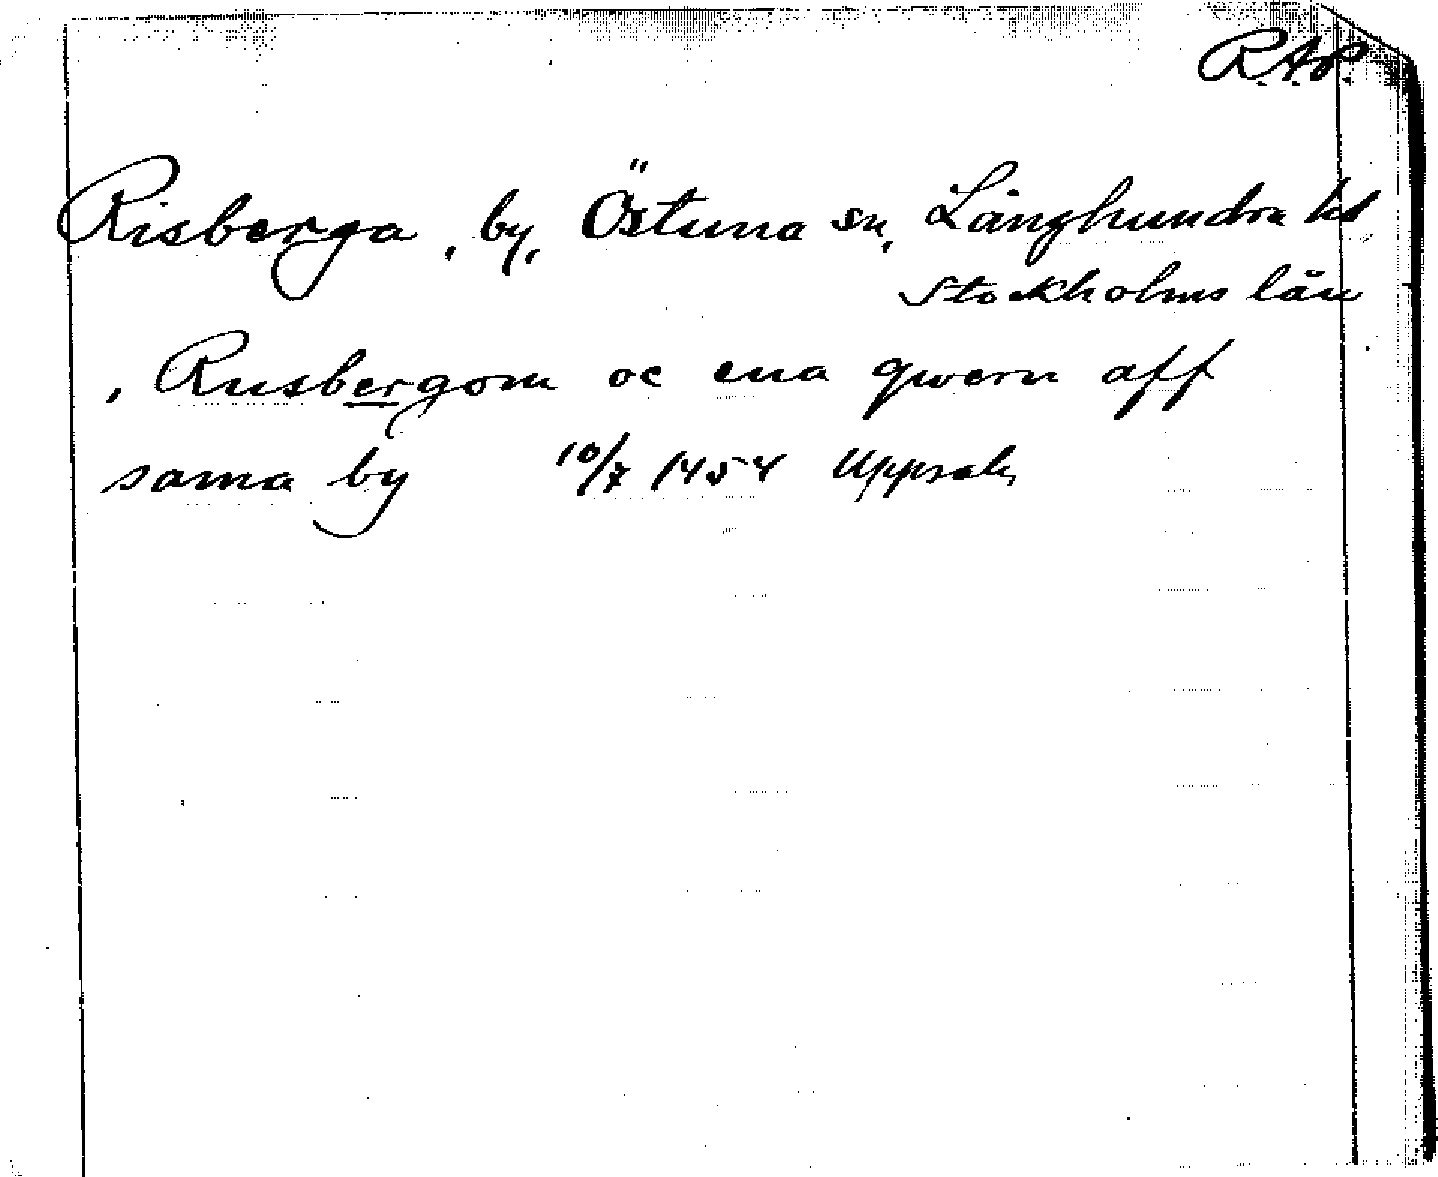 R.A.P.
Risberga, by, Östuna sn, Långhundra hd
Stockholms län
, Rusbergom oc ena qwern aff
sama by 10/7 1454 Uppsala